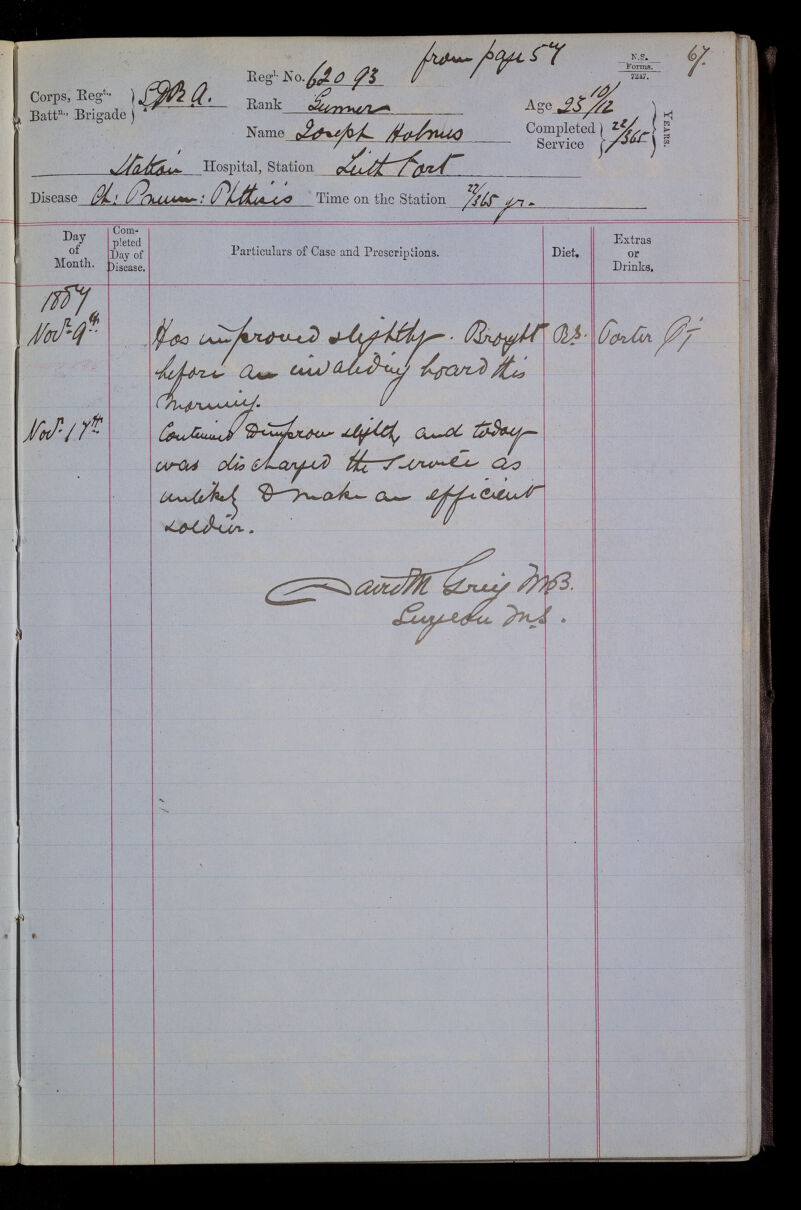 from page 57
67.
N.S.
Forms.
7247.
Corps, Regt.,
Battn., Brigade
S.D.R.A.
Regl. No. 62093
Rank Gunner
Name Joseph Holmes
Age 23 10/12
Completed Service 22/365
YEARS.
Station Hospital, Station Leith Fort
Disease Ch: Pneum: Phthisis Time on the Station 22/365 yr.
Day of Month.
Completed Day of Disease.
Particulars of Case and Prescriptions.
Diet.
Extras or Drinks.
1887
Novr. 9th Has improved slightly. Brought Porter
before an invaliding board this
morning.
Novr. 17th Continued to improve slightly, and today
was discharged the Service as
unlikely to make an efficient
soldier.
David M Greig MB.
Surgeon M.S.